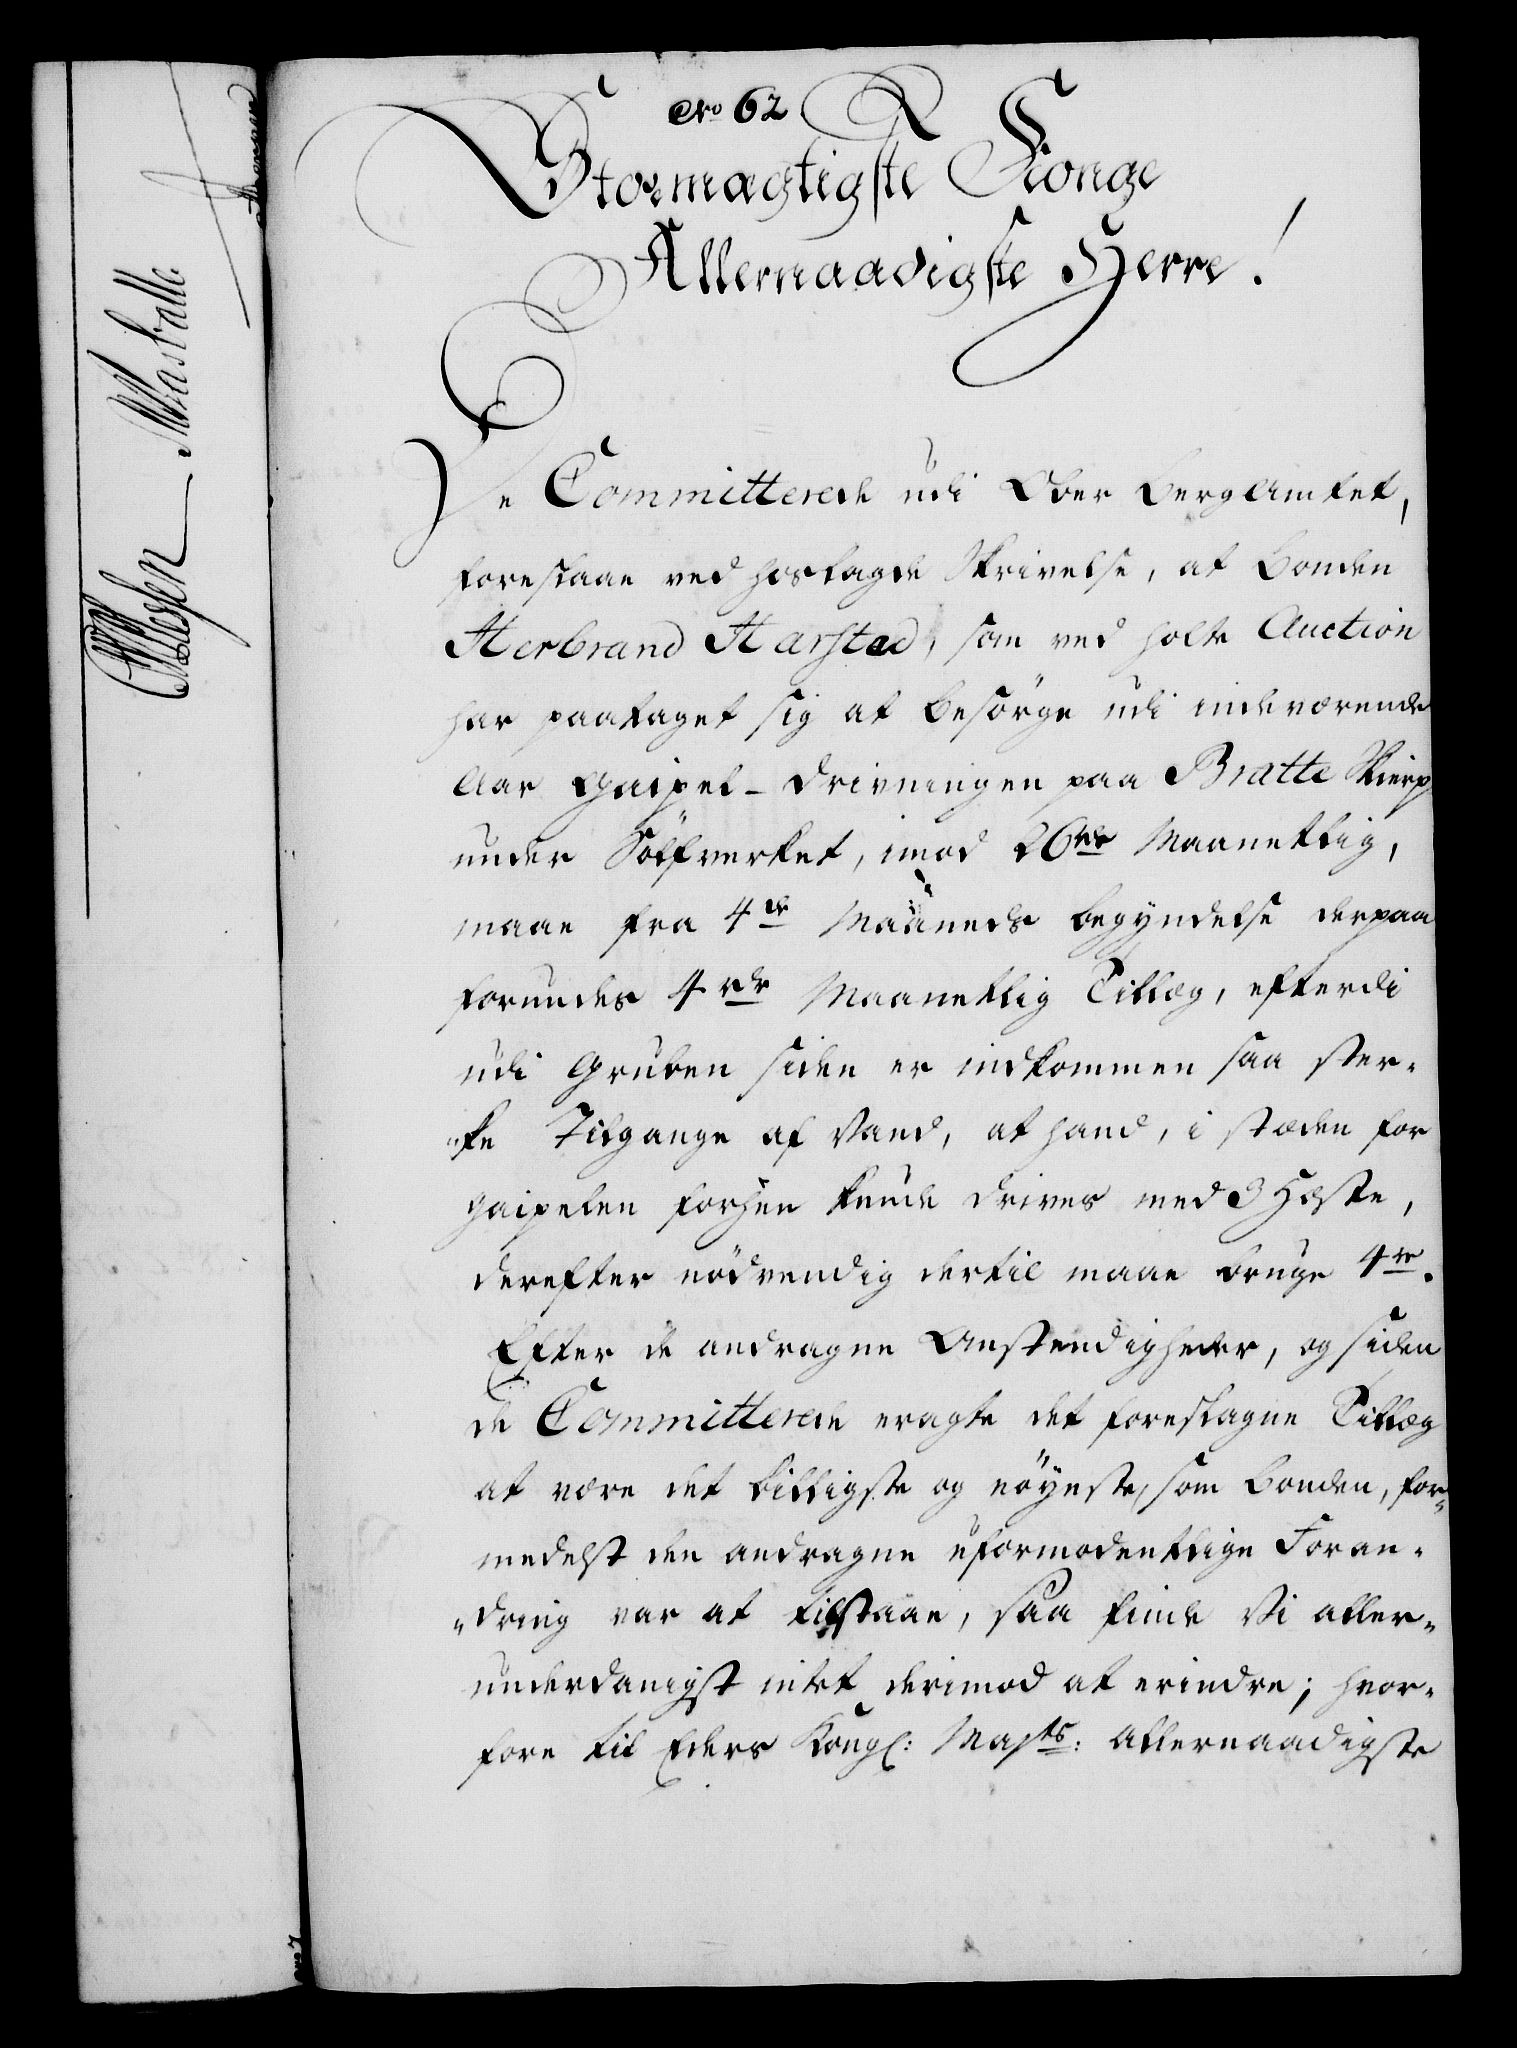 No 62
Stormægtigste Konge
Allernaadigste Herre!
De Committerede udi Ober BergAmtet,
forestaae ved hostagde Skrivelse, at Bonden
Herbrand Harstad, som ved holte Auction
har paataget sig at besörge udi indeværende
Aar Gaipel-Drivningen paa Bratte Skierp
under Sölfverket, imod 26 rdr Maanetlig,
maae fra 4de Maaneds begyndelse derpaa
forundes 4 rdr Maanetlig Tillæg, efterdi
udi Gruben siden er indkommen saa ster-
„ke Tilgange af Vand, at hand, i stæden for
Gaipelen forhen kunde drives med 3 Heste,
derefter nödvendig dertil maae bruge 4re.
Efter de andragne Omstendigheder, og siden
de Committerede eragte det foreslagne Tillæg
at være det billigste og nöyeste, som Bonden, for„
medelst den andragne uformodentlige Foran-
„dring var at tilstaae, saa finde Vi aller-
underdanigst intet derimod at erindre; hvor-
fore til Eders Kongl: Majts: Allernaadigste